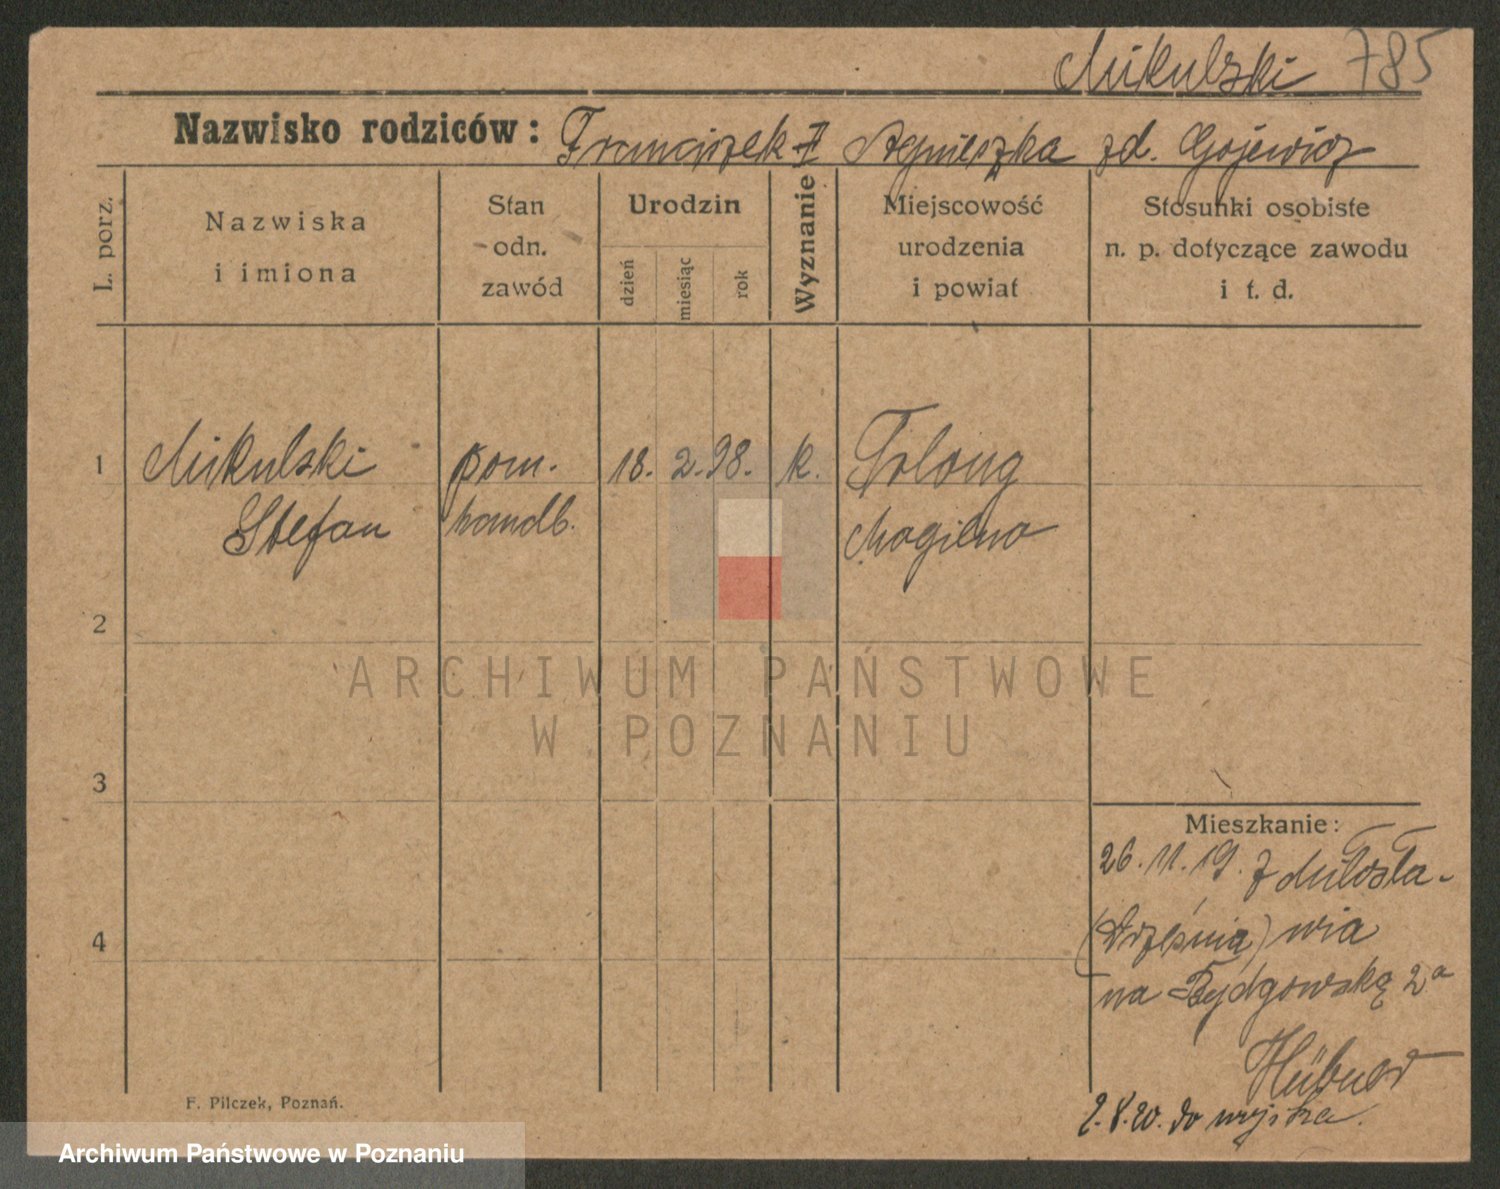 Mikulski 785
Nazwisko rodziców: Franciszek Agnieszka zd. Gojewicz
L. porz.
Nazwiska
i imiona
Stan
odn.
zawód
Urodzin
dzień
miesiąc
rok
Wyznanie
Miejscowość
urodzenia
i powiat
Stosunki osobiste
n. p. dotyczące zawodu
i t. d.
1 Mikulski pom. 18. 2. 98. k.
Stefan handl. Mogilno
2
3
4
Mieszkanie:
26. 11. 19. z Miłosła-
(Września) wia
na Bydgowską 2a
Hübner
2.8.20. do wojska.
F. Pilczek, Poznań.
ARCHIWUM PAŃSTWOWE
W POZNANIU
Archiwum Państwowe w Poznaniu